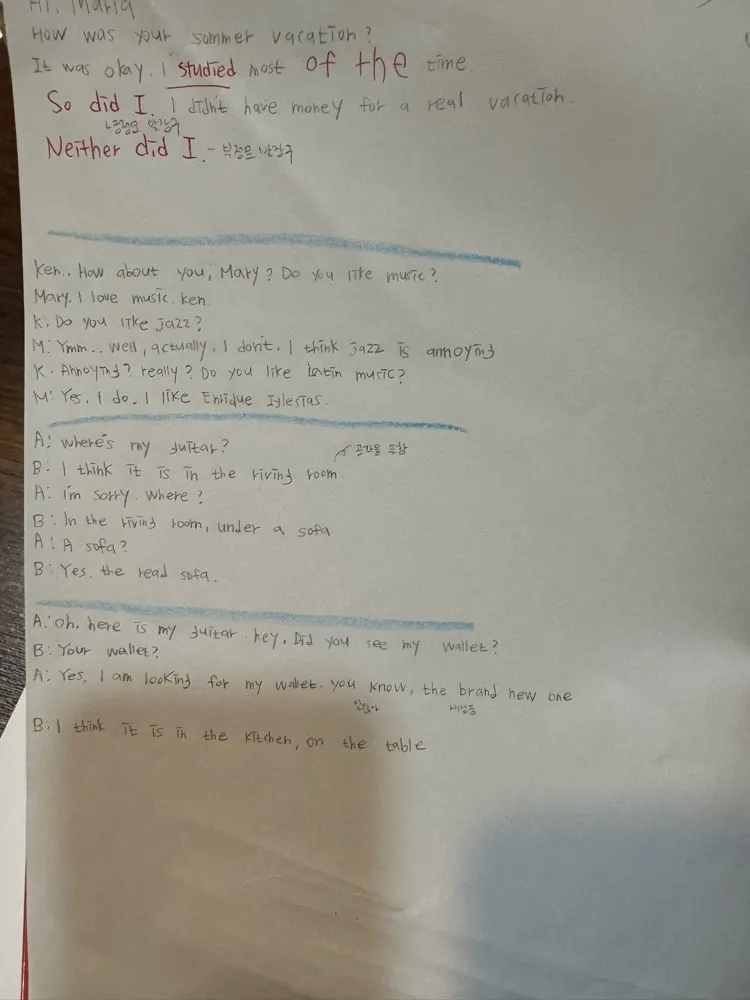 Hi, Maria
How was your sommer vacation?
It was okay. I studied most of the time
So did I. I didn't have money for a real vacation.
긍정문 맞장구
Neither did I. - 부정문 맞장구
Ken.. How about you, Mary? Do you like music?
Mary. I love music. ken.
K. Do you like jazz?
M: Ymm.. well, actually, I don't. I think jazz is annoying
K. Annoying? really? Do you like Latin music?
M: Yes, I do. I like Enridue Iglesias.
A: where's my guitar?
공간을 포함
B: I think it is in the riving room.
A: I'm sorry. where?
B: In the riving room, under a sofa
A: A sofa?
B: Yes. the read sofa.
A: oh, here is my guitar. hey, Did you see my wallet?
B: Your wallet?
A: Yes, I am looking for my wallet. you know, the brand new one
있잖아 새상품
B. I think it is in the kitchen, on the table